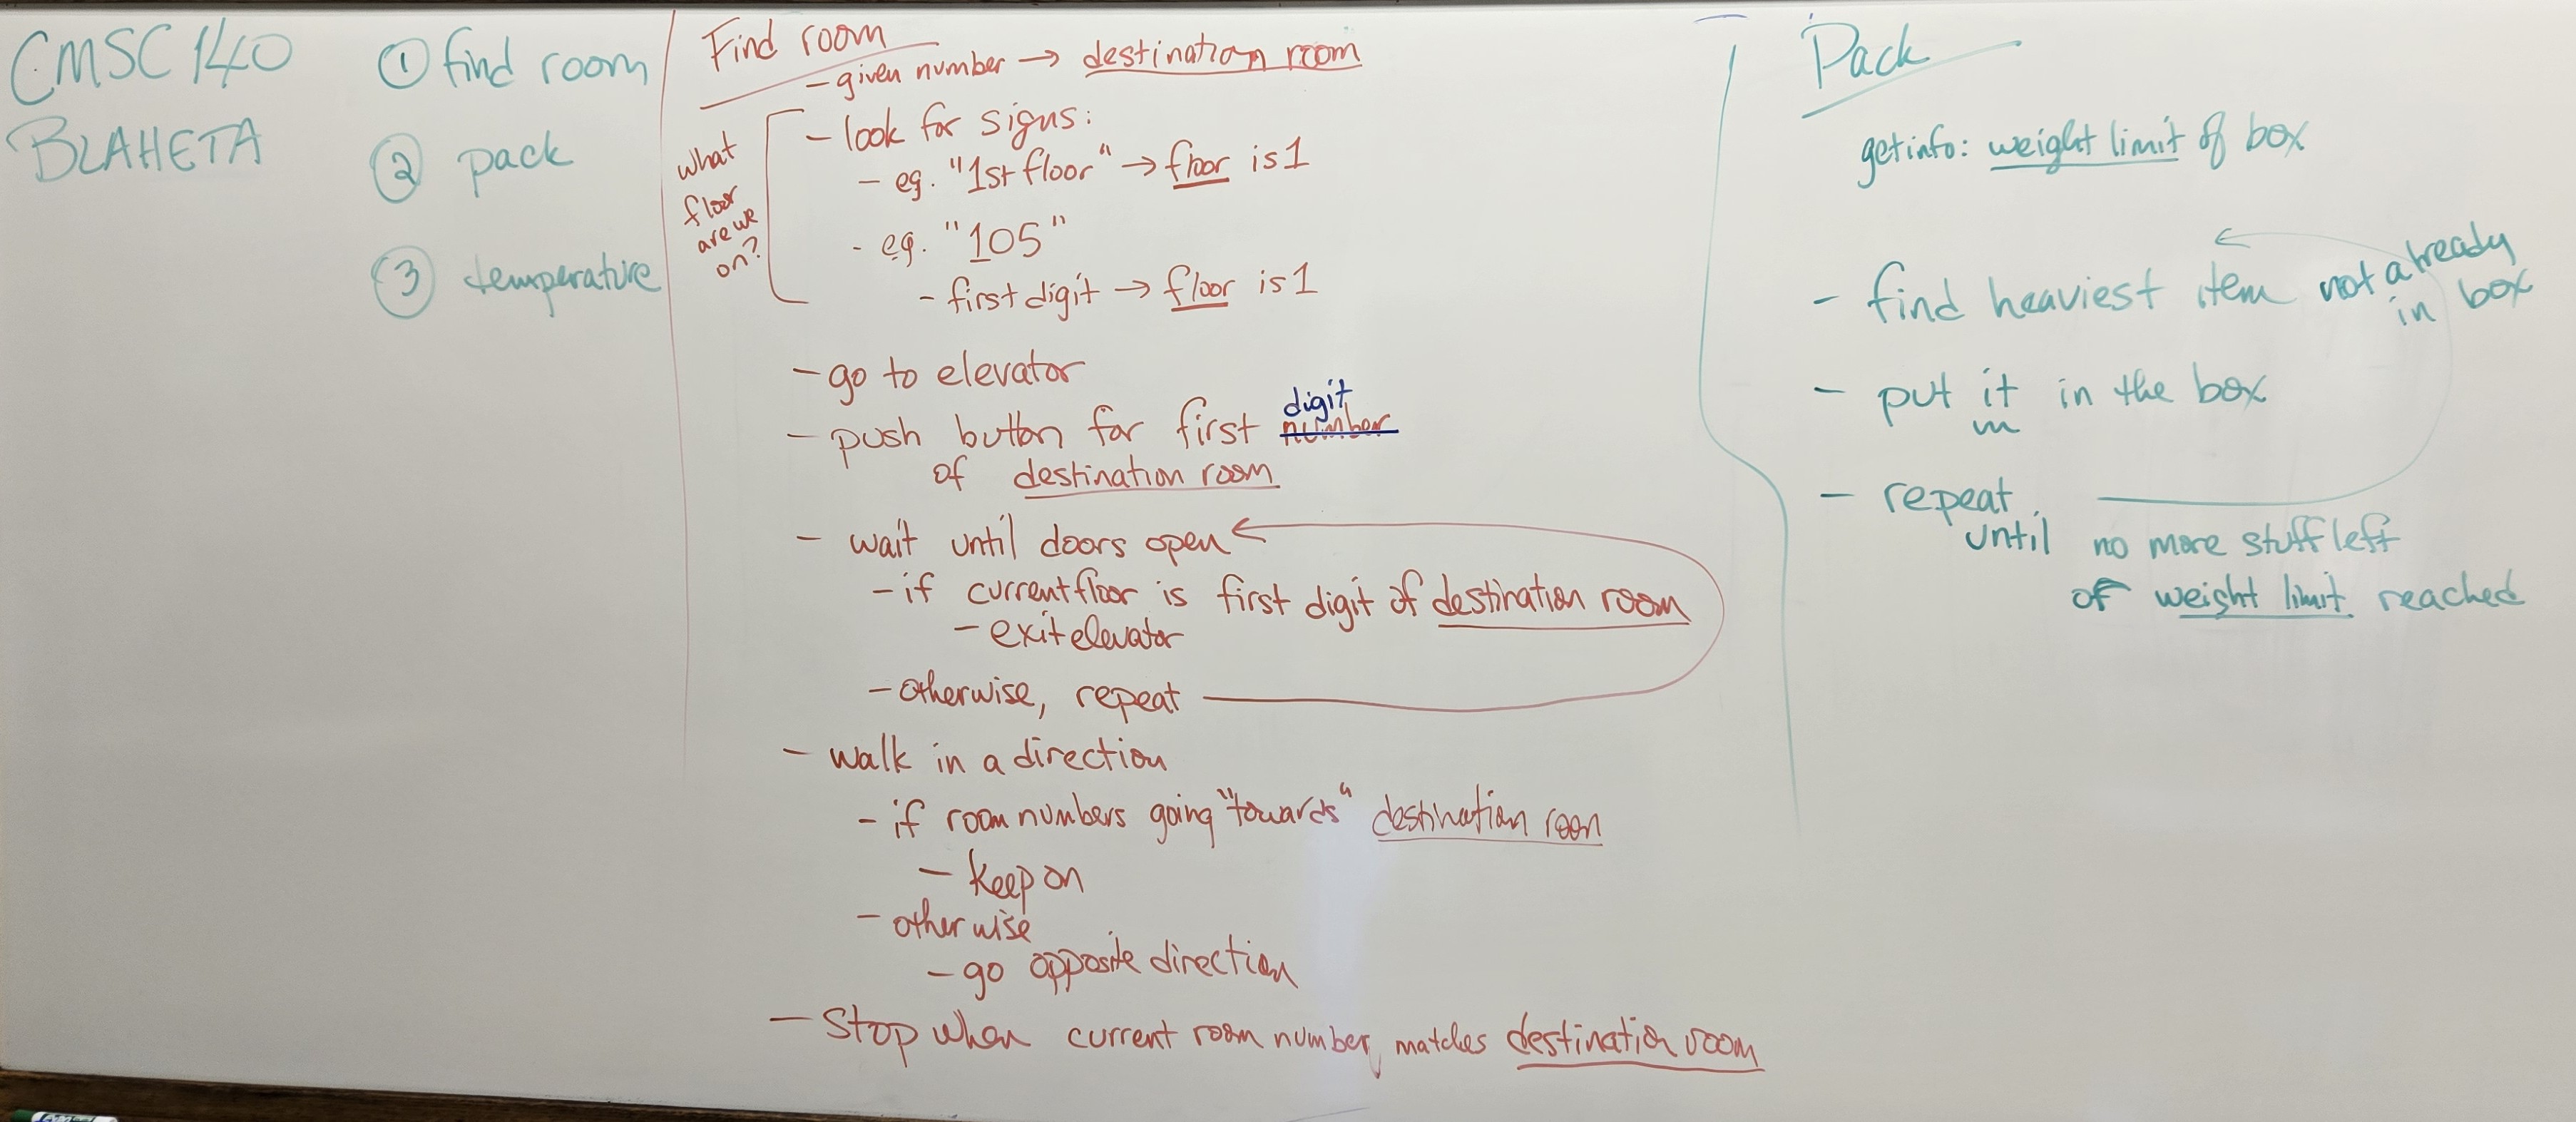 CMSC 140
BLAHETA
① find room
② pack
③ temperature
Find room
- given number → destination room
what
floor
are we
on?
- look for signs:
- eg. "1st floor" → floor is 1
- eg. "105"
- first digit → floor is 1
- go to elevator
- push button for first number digit
of destination room
- wait until doors open
- if current floor is first digit of destination room
- exit elevator
- otherwise, repeat
- walk in a direction
- if room numbers going "towards" destination room
- keep on
- otherwise
- go opposite direction
- Stop when current room number matches destination room
Pack
get info: weight limit of box
- find heaviest item not already
in box
- put it in the box
- repeat
until no more stuff left
or weight limit reached